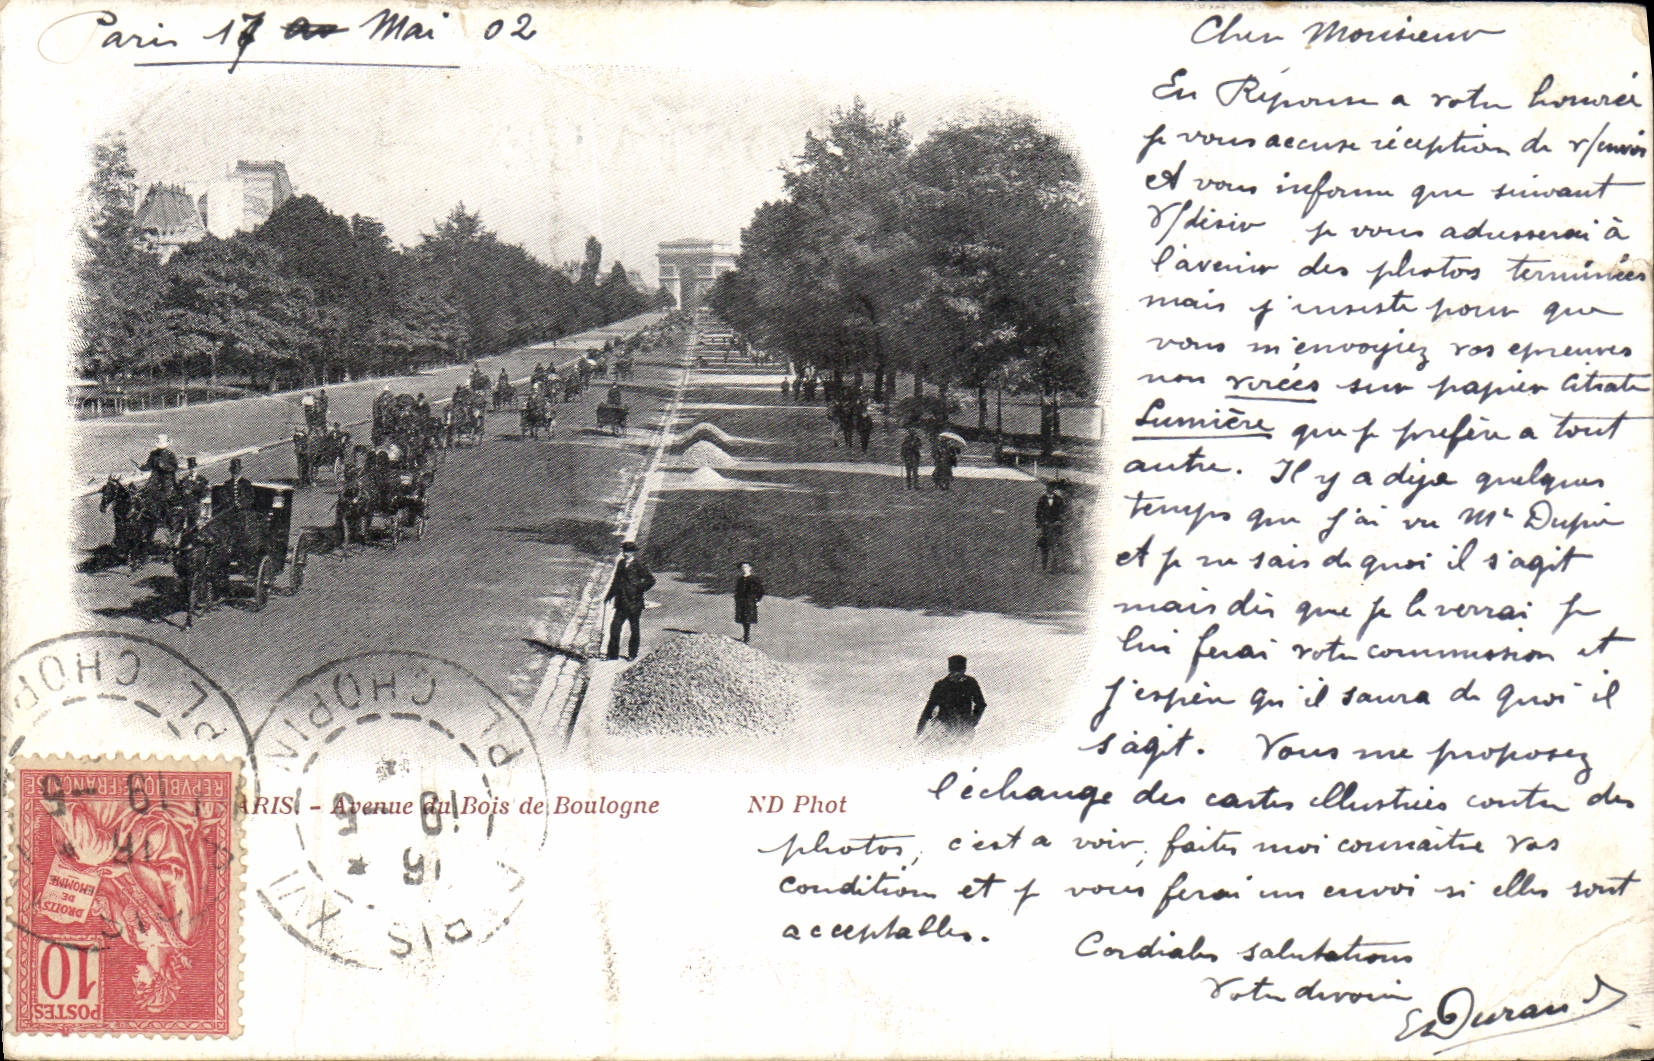 Paris 17 Mai 02
Cher Monsieur
En Réponse a votre honorée
je vous accuse réception de v/envoi
et vous informe que suivant
V/désir je vous adresserai à
l'avenir des photos terminées
mais j'insiste pour que
vous m'envoyiez vos epreuves
non virées sur papier Citrate
Lumière que je préfère a tout
autre. Il y a dèja quelques
temps que j'ai vu Mr Dupin
et je ne sais de quoi il s'agit
mais dès que je le verrai je
lui ferai votre commission et
j'espère qu'il saura de quoi il
s'agit. Vous me proposez
l'échange des cartes illustrées contre des
photos, c'est a voir, faites moi connaitre vos
conditions et je vous ferai un envoi si elles sont
acceptables.
Cordiales salutations
Votre devoué
Durand
ARIS. - Avenue du Bois de Boulogne
ND Phot
PL. CHOPIN
PARIS XVI
16
19 -5
REPVBLIQVE FRANÇAISE
DROITS
DE
L'HOMME
10
POSTES